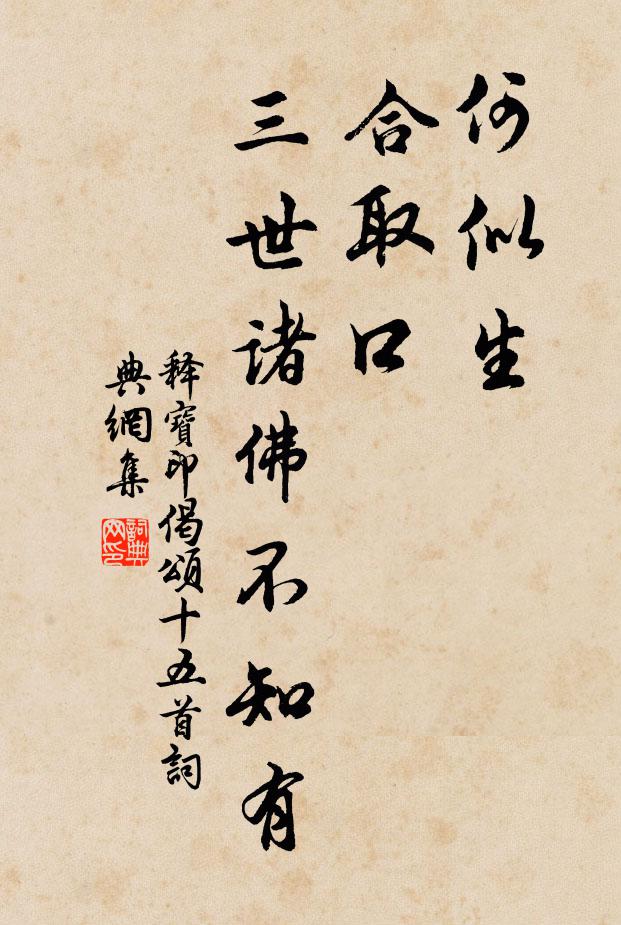 何似生
合取口
三世諸佛不知有
释寶印偈頌十五首詞
典網集
詞典
网印